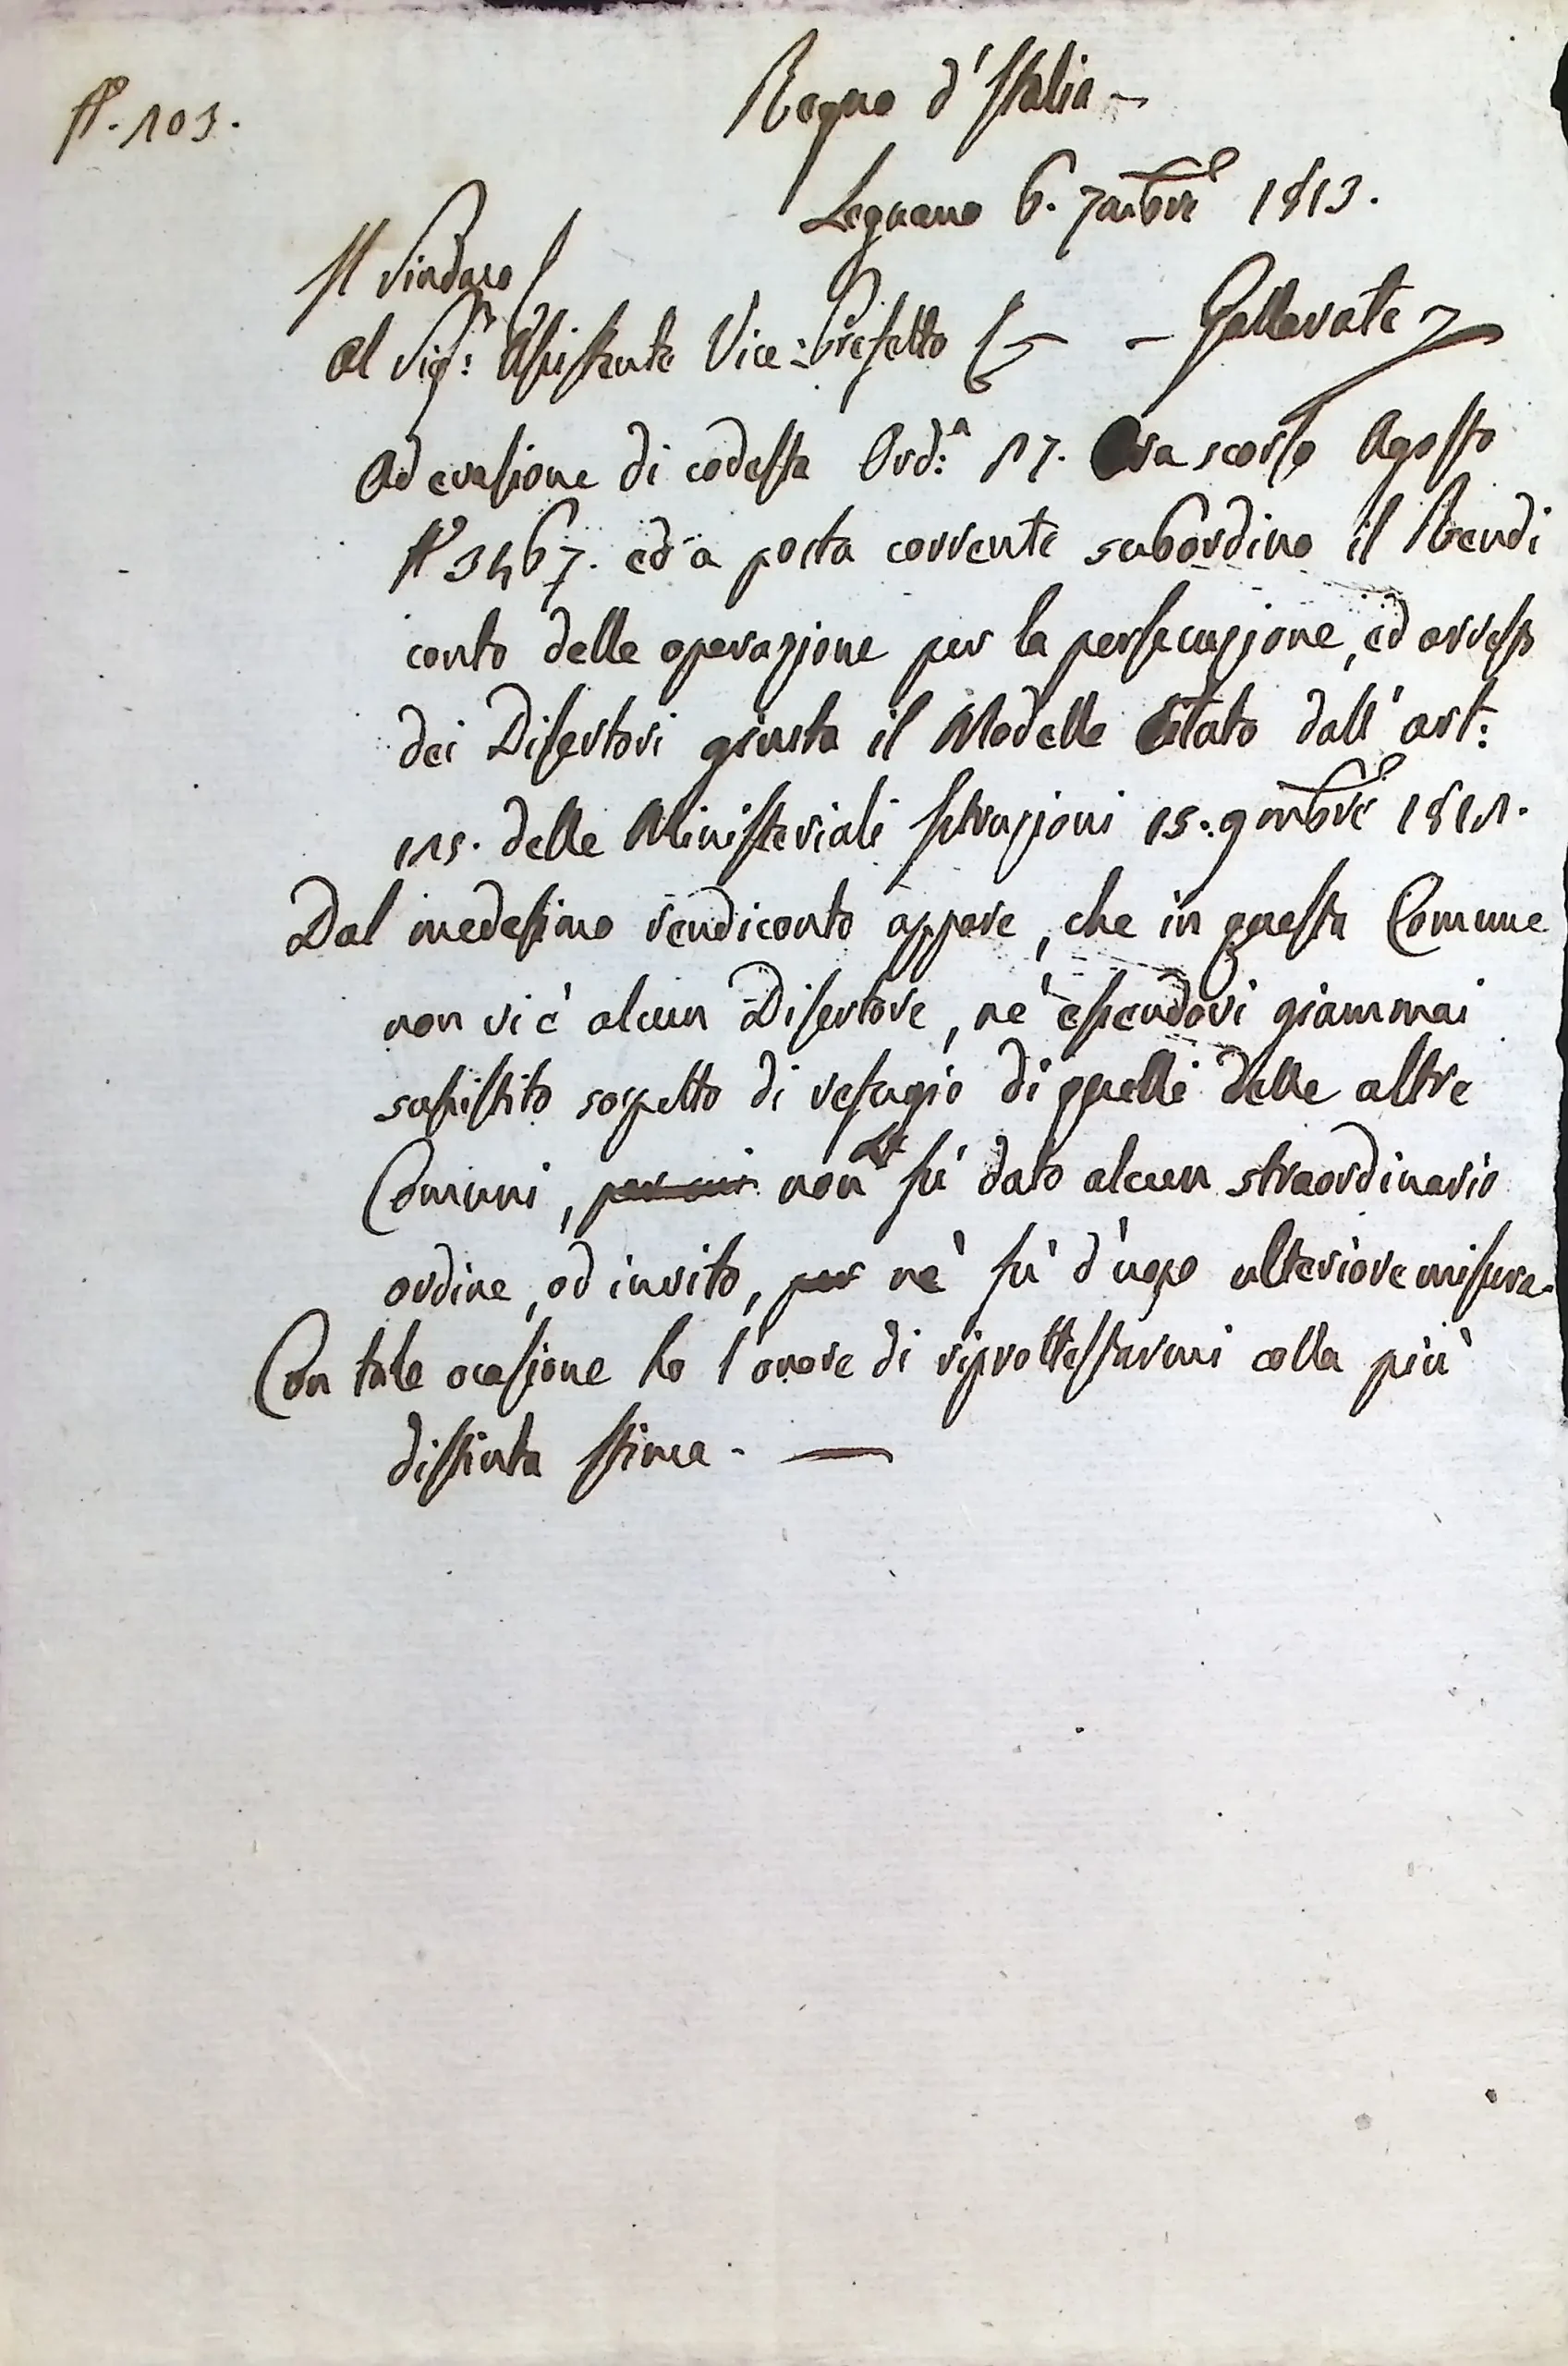 N.° 103.
Regno d'Italia -
Legnano 6. 7mbre 1813.
Il Sindaco
Al Sig.r Assistente Vice-Prefetto - Gallarate
Ad evasione di codesta Ord.a 17. ora scorso Agosto
N° 3467. ed a posta corrente subordino il Rendi
conto delle operazione per la persecuzione, ed arresto
dei Disertori giusta il Modello dall'art:
115. delle Ministeriali Istruzioni 15. 9mbre 1811.
Dal medesimo rendiconto appare, che in questa Comune
non vi è alcun Disertore, nè essendovi giammai
sussistito sospetto di refugio di quelli delle altre
Comuni, per cui non fù dato alcun straordinario
ordine, od invito, per nè fù d'uopo ulteriore misura.
Con tale ocasione ho l'onore di riprottestarmi colla più
distinta stima. -